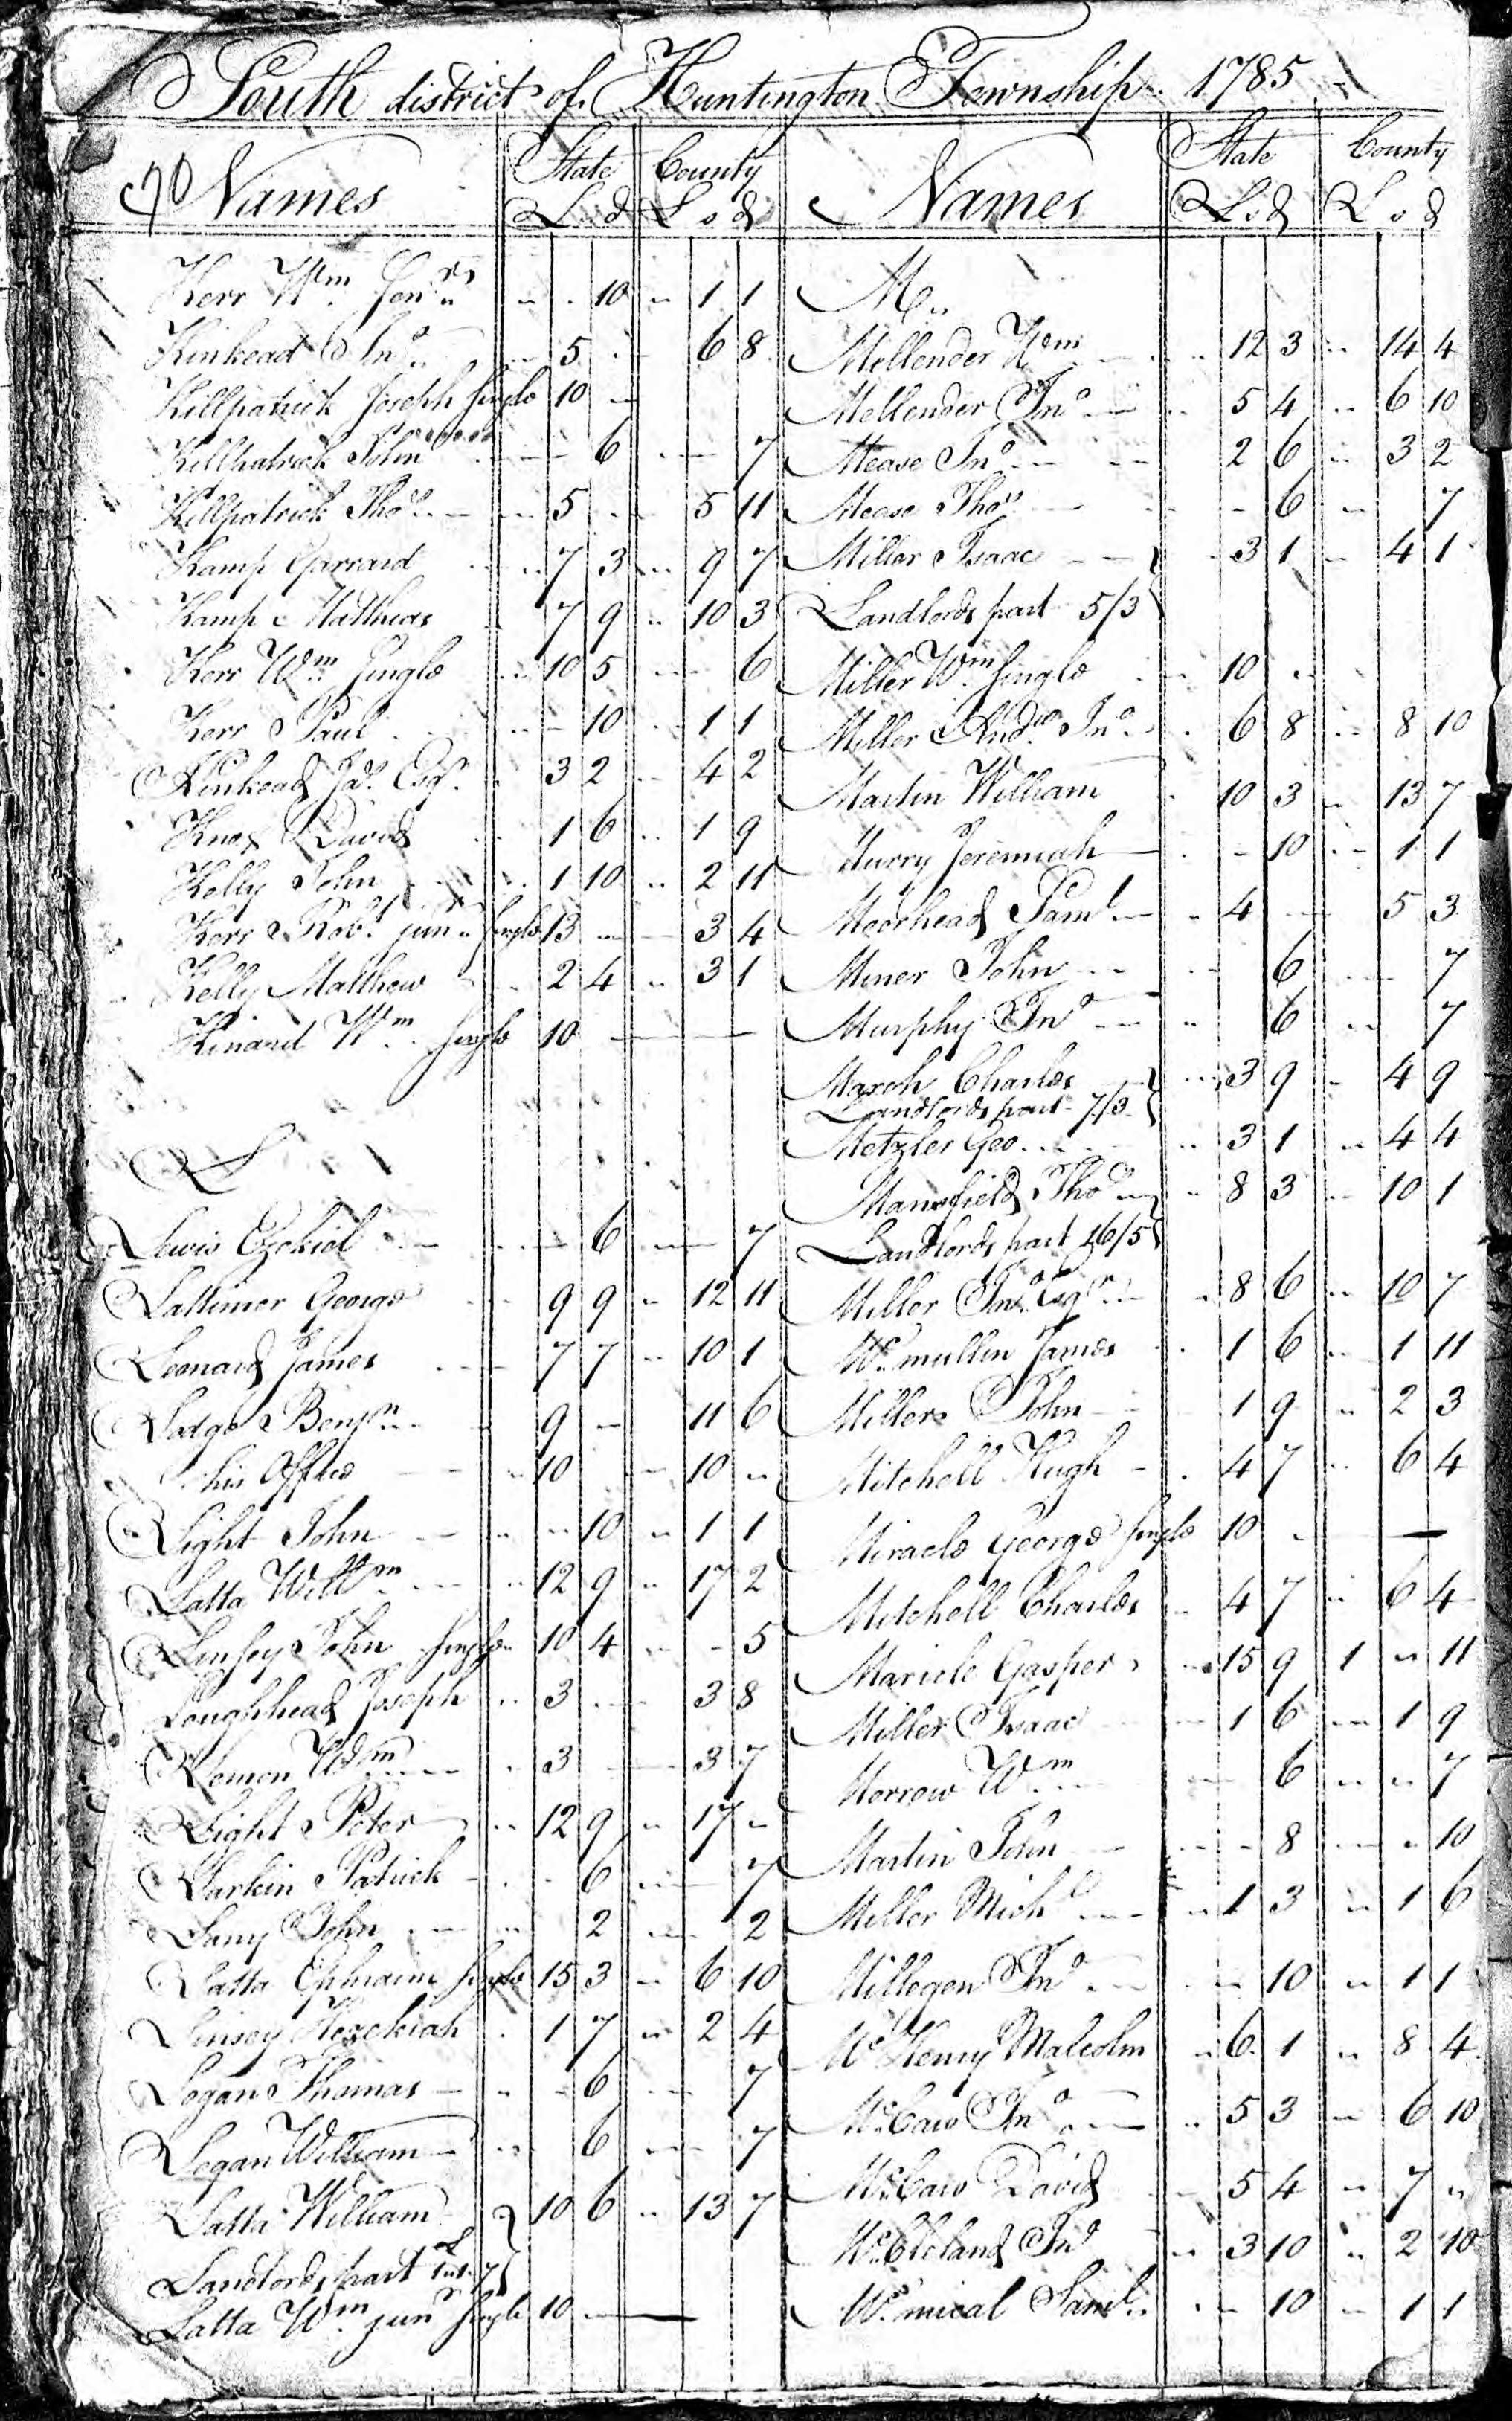 South district of Huntington Township 1785
70 Names State County Names State County
L s d L s d L s d L s d
Kerr Wm Senr .. - 10 .. 1 1
Kinkead Jno .. 5 .. 6 8
Killpatrick Joseph single 10 -
Killpatrick John - 6 - 7
Killpatrick Thos - 5 .. 5 11
Kamp Garrard .. 7 3 .. 9 7
Kamp Matthias 7 9 .. 10 3
Kerr Wm single .. 10 5 - 6
Kerr Paul .. - 10 .. 1 1
Kinkead Jas Esqr 3 2 .. 4 2
Knox David 1 6 .. 1 9
Kelly John 1 10 .. 2 11
Kerr Robt junr single 13 - 3 4
Kelly Matthew 2 4 .. 3 1
Kinard Wm single 10 -
L
Lewis Ezekiel - 6 - 7
Lattimor George 9 9 .. 12 11
Leonard James 7 7 .. 10 1
Lodge Benjn 9 - 11 6
his Office .. 10 - 10 ..
Light John .. - 10 .. 1 1
Latta Willm .. 12 9 .. 17 2
Linsey John single 10 4 .. - 5
Loughhead Joseph .. 3 - 3 8
Lemon Wm .. 3 - 3 7
Light Peter .. 12 9 .. 17 ..
Larkin Patrick - 6 - 7
Lany John .. 2 - 2
Latta Ephraim single 15 3 .. 6 10
Linsey Hezekiah 1 7 .. 2 4
Logan Thomas .. - 6 - 7
Logan William .. 6 - 7
Latta William 10 6 .. 13 7
Landlords part
Latta Wm junr single 10 -
M
Mellender Wm .. 12 3 .. 14 4
Mellender Jno .. 5 4 .. 6 10
Mease Jno 2 6 .. 3 2
Mease Thos - 6 .. 7
Miller Isaac 3 1 .. 4 1
Landlords part 5/3
Miller Wm single 10 ..
Miller Andw Jno 6 8 .. 8 10
Martin William 10 3 .. 13 7
Murry Jeremiah - 10 .. 1 1
Moorhead Saml .. 4 - 5 3
Miner John .. 6 - 7
Murphy Jno .. 6 .. 7
March Charles .. 3 9 - 4 9
Landlords part 7/3
Metzler Geo .. 3 1 .. 4 4
Mansfield Thos .. 8 3 .. 10 1
Landlords part 16/5
Miller Jno Esqr 8 6 .. 10 7
Mcmullin James 1 6 .. 1 11
Millers John 1 9 .. 2 3
Mitchell Hugh 4 7 .. 6 4
Miracle George single 10 -
Mitchell Charles 4 7 .. 6 4
Maricle Gasper .. 15 9 1 .. 11
Miller Isaac 1 6 .. 1 9
Morrow Wm 6 .. .. 7
Martin John - 8 .. .. 10
Miller Michl .. 1 3 .. 1 6
Millegen Jno .. 10 .. 1 1
McHenry Malcolm 6 1 .. 8 4
McCaw Jno .. 5 3 .. 6 10
McCaw David 5 4 .. 7 ..
McCleland Jno .. 3 10 .. 2 10
Mcmical Saml - 10 .. 1 1